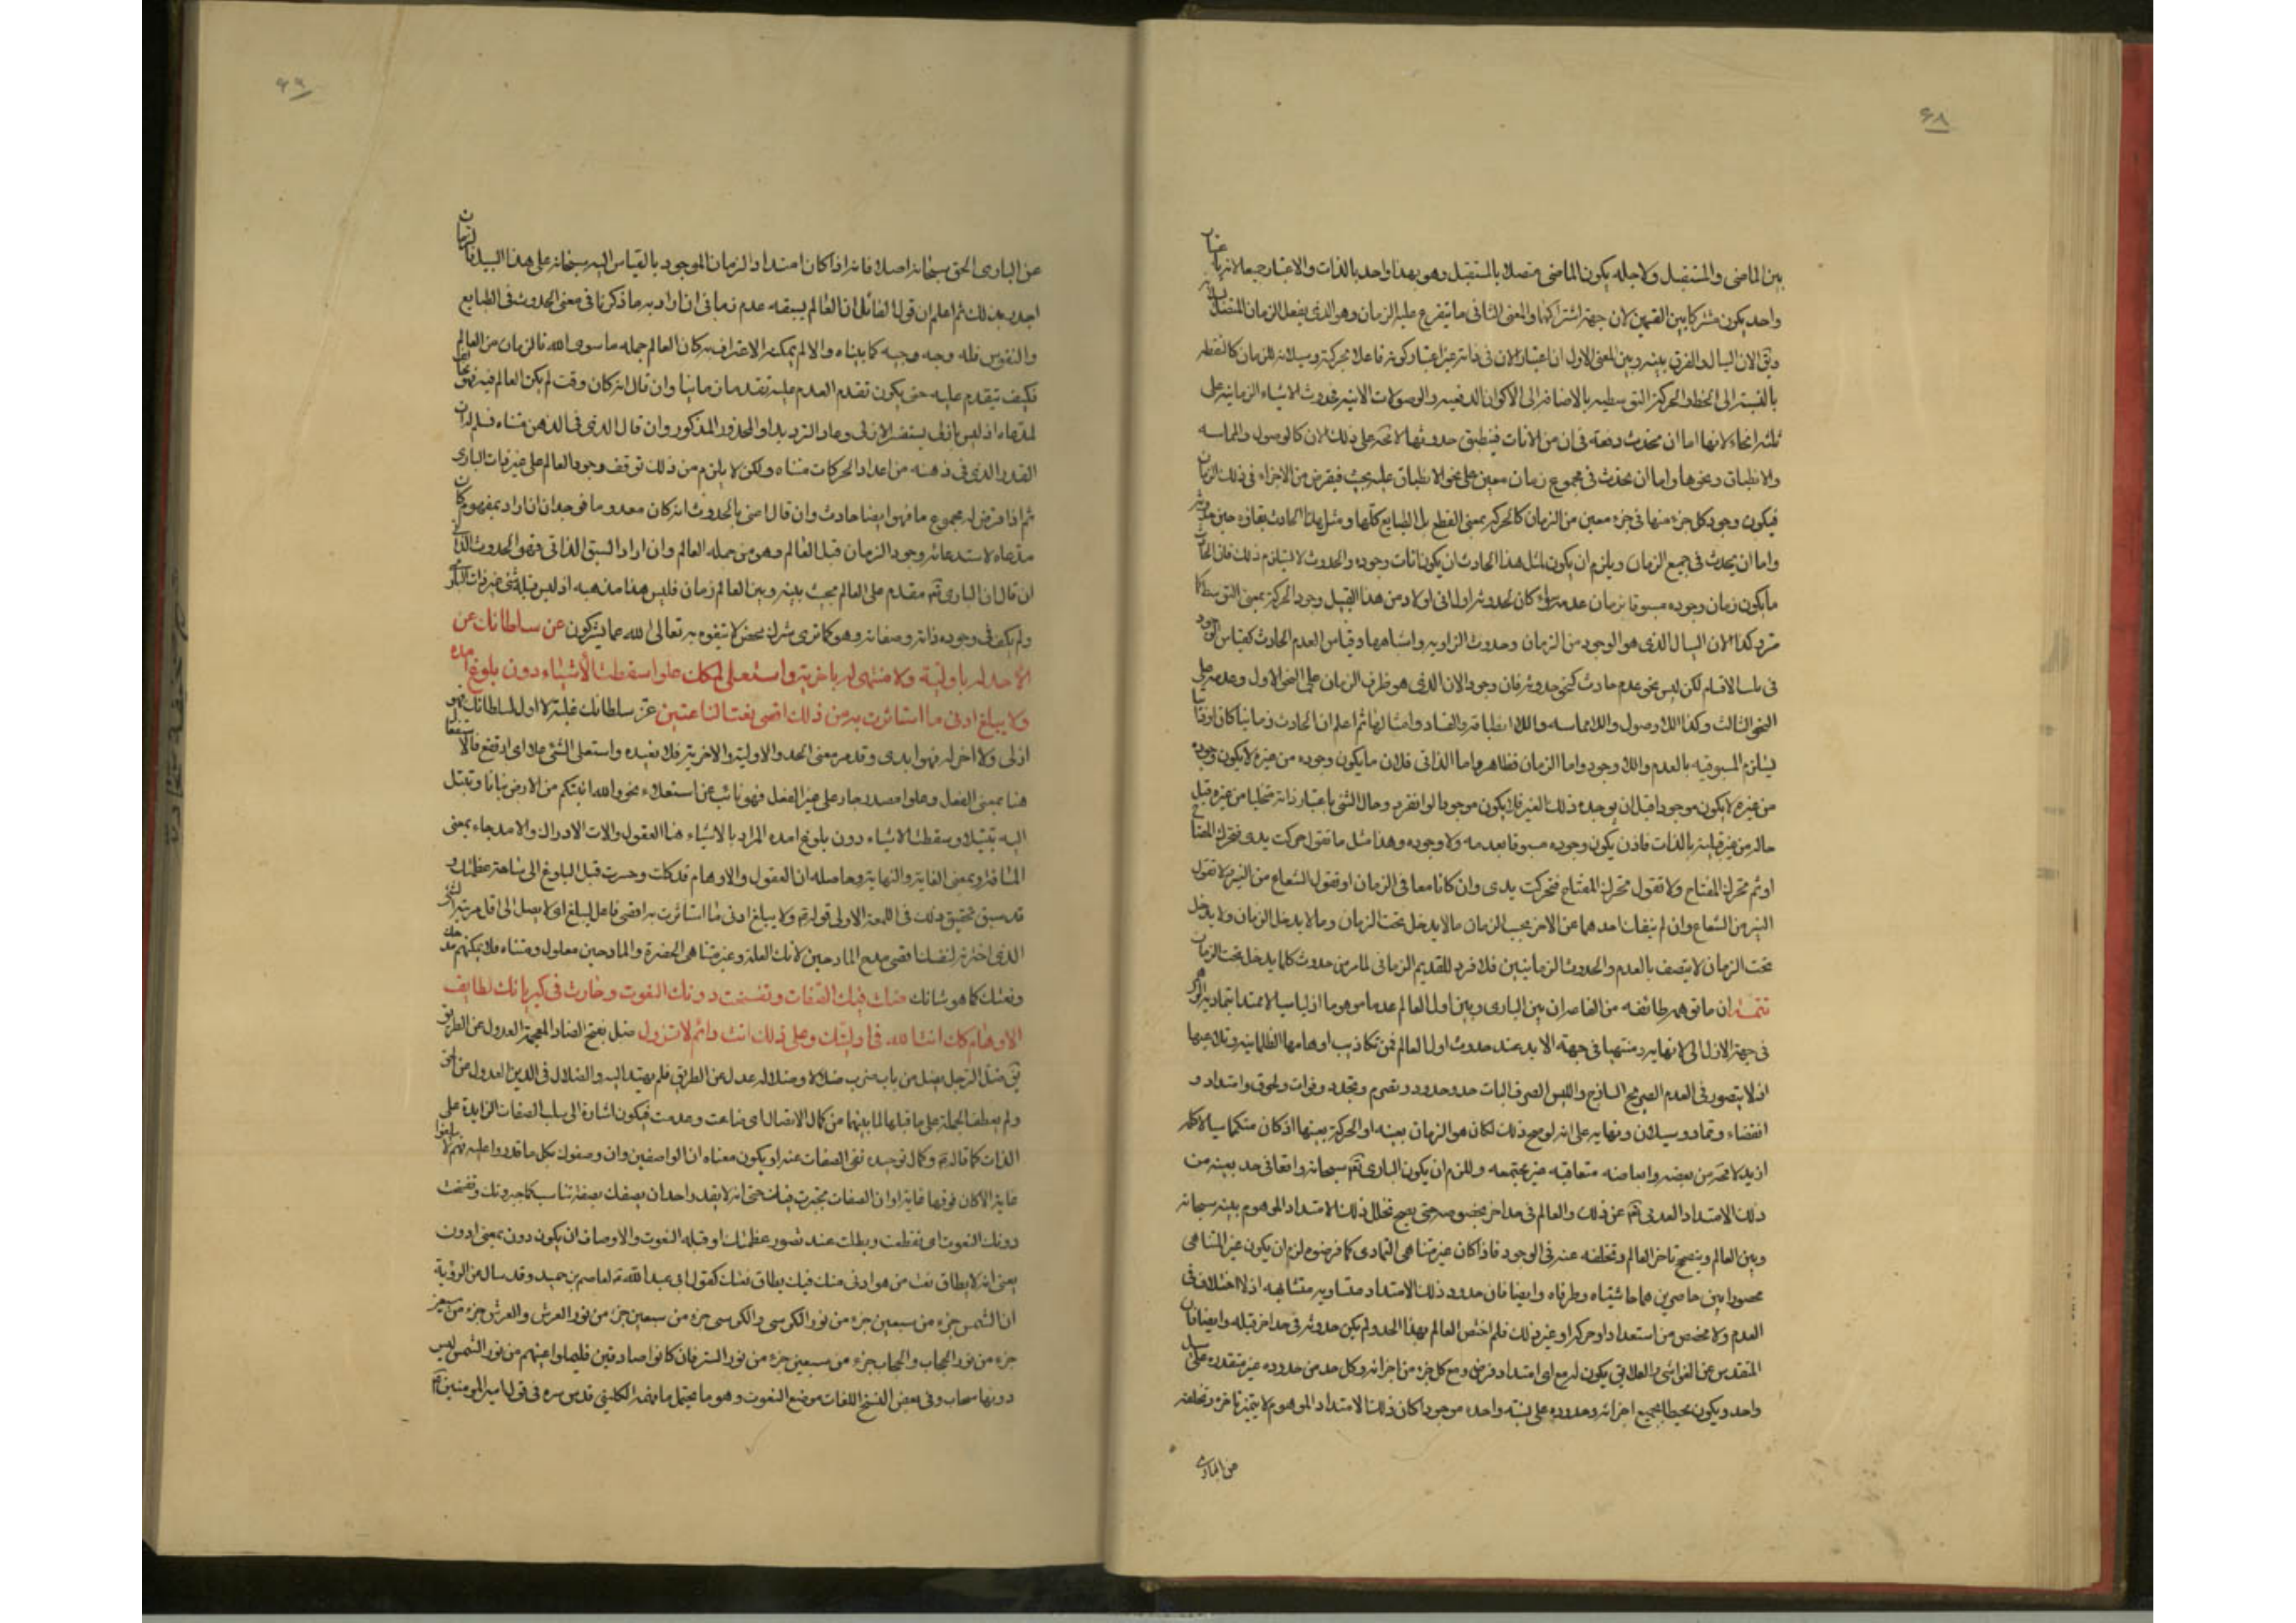 ٤٨
بين الماضى والمستقبل ولاجله يكون الماضى متصلا بالمستقبل وهو بهذا واحد بالذات والاعتبار جميعا لانه باعتبار
واحد يكون مشتركا بين القسمين لان جهة اشتراكهما والمعنى الثانى ما يتفرع عليه الزمان وهو الذى يفعل الزمان المتصل
ويق الان السيال والفرق بينه وبين المعنى الاول ان اعتبار الان فى ذاته غير اعتبار كونه فاعلا بحركته وسيلانه للزمان كالنقطة
بالنسبة الى الخط والحركة التوسطيه بالاضافة الى الاكوان الدفعيه والوصولات الانيه فحدوث الاشياء الزمانية على
ثلثه انحاء لانها اما ان يحدث دفعة فى ان من الانات فينطبق حدوثها لا محة على ذلك الان كالوصول والمماسه
والانطباق ونحوها واما ان يحدث فى مجموع زمان معين على نحو الانطباق عليه بحيث فيفرض من الاجزاء فى ذلك الزمان
فيكون وجود كل جزء منها فى جزء معين من الزمان كالحركة بمعنى القطع بل الطبايع كلها ومثل هذا الحادث بقاؤه حين حدوثه
واما ان يحدث فى جميع الزمان ويلزم ان يكون لمثل هذا الحادث ان يكون انات وجوده والحدوث لا يستلزم ذلك فان الحادث
ما يكون زمان وجوده مسبوقا بزمان عدمه سواء كان لحدوثه اول انى اولا ومن هذا القبيل وجود الحركة بمعنى التوسط كما
مر وكذا الان السيال الذى هو الوجود من الزمان وحدوث الزاويه واشباهها وقياس العدم الحادث كقياس الوجود
فى تلك الاقسام لكن ليس نحو عدم حادث كنحو حدوثه فان وجود الان الذى هو طرف الزمان على النحو الاول وعدمه على
النحو الثالث وكذا اللاوصول واللامماسه واللاانطباقه والفساد وامثالها ثم اعلم ان الحادث زمانيا كان او ذاتيا
يستلزم المسبوقيه بالعدم واللاوجود واما الزمان فظاهر واما الذاتى فلان ما يكون وجوده من غيره لا يكون وجوده
من غيره لا يكون موجودا قبل ان يوجده ذلك الغير فلا يكون موجودا لو انفرد وحال الشى باعتبار ذاته متخليا من غيره قبل
حاله من غيره قبلية بالذات فاذن يكون وجوده مسبوقا بعدمه ولا وجوده وهذا مثل ما تقول حركت يدى فتحرك المفتاح
او ثم تحرك المفتاح ولا تقول تحرك المفتاح فتحركت يدى وان كانا معا فى الزمان او تقول الشعاع من النير ولا تقول
النير من الشعاع وان لم ينفك احدهما عن الاخر بحسب الزمان ما لا يدخل تحت الزمان وما لا يدخل الزمان ولا يدخل
تحت الزمان لا يتصف بالعدم والحدوث الزمانيين فلا فرد للقديم الزمانى لما مر من حدوث كلما يدخل تحت الزمان
تتمة ان ما توهمه طائفه من القاصران بين البارى وبين اول العالم عدما موهوما ازليا سيالا ممتدا بتماديه الوهمى
فى جهة الازل الى لا نهاية منتهيا فى جهة الابد عند حدوث اول العالم فمن تكاذيب اوهامها الظلمانيه وتلاعيبها
اذ لا يتصور فى العدم الصريح الساذج والليس الصرف البات حد وحدود وتصرم وتجدد وفوات ولحوق وامتداد و
انقضاء وتماد وسيلان ونهاية على انه لو صح ذلك لكان هو الزمان بعينه او الحركة بعينها اذ كان متكمما سيالا كله
ازيد لا محة من بعضه وابعاضه متعاقبه غير مجتمعه وللزم ان يكون البارى تع سبحانه واقعا فى حد بعينه من
ذلك الامتداد العدمى تع عن ذلك والعالم فى حد اخر بخصوصه حتى يصح تخلل ذلك الامتداد الموهوم بينه سبحانه
وبين العالم ويتصح تاخر العالم وتخلفه عنه فى الوجود فاذا كان غير متناهى التمادى كما فرضوه لزم ان يكون غير المتناهى
محصورا بين حاصرين هما حاشيتاه وطرفاه وايضا فان حدود ذلك الامتداد متساويه متشابهه اذ لا اختلاف فى
العدم ولا مخصص من استعداد او حركة او غير ذلك فلم اختص العالم بهذا الحد ولم يكن حدوثه فى حد اخر قبله وايضا فان
المتقدس عن الغواشى والعلايق يكون له مع اى امتداد فرض ومع كل جزء من اجزائه وكل حد من حدوده غير متقدره على سبيل
واحد ويكون محيطا بجميع اجزائه وحدوده على نسبة واحده موجودا كان ذلك الامتداد او الموهوم لا يتميز تاخره وتخلفه
عن البارى
٤٩
عن البارى الحق سبحانه اصلا فانه اذا كان امتداد الزمان الموجود بالقياس اليه سبحانه على هذا السبيل فالزمان
اجدر بذلك ثم اعلم ان قول القائل ان العالم يسبقه عدم زمانى ان اراد به ما ذكرنا فى معنى الحدوث فى الطبايع
والنفوس فله وجه وجيه كما بيناه والا لم يمكنه الاعتراف به كان العالم جمله ما سوى الله فالزمان من العالم
فكيف يتقدم عليه حتى يكون تقدم العدم عليه تقدما زمانيا وان قال انه كان وقت لم يكن العالم فيه فهو
لمدعاه اذ ليس بازلى يستفسر الازلى وعاد الترديد والمحذور المذكور وان قال الذى فى الذهن متناه فسلم ان
القدر الذى فى ذهنه من اعداد الحركات متناه ولكن لا يلزم من ذلك توقف وجود العالم على غير ذات البارى
ثم اذا فرض له مجموع ما فهو ايضا حادث وان قال اعنى بالحدوث انه كان معدوما فوجد ان اراد بمفهوم كان
مدعاه لاستدعائه وجود الزمان قبل العالم وهو من جمله العالم وان اراد السبق الذاتى فهو الحدوث الذاتى
ان قال ان البارى تع مقدم على العالم بحيث بينه وبين العالم زمان فليس هذا مذهبه اذ ليس قبله شئ غير ذات البارى
ولم يكف فى وجوده ذاته وصفاته وهو كما ترى شرك محض لا يتفوه به تعالى الله عما يشركون عن سلطانك عن
الا حد له باولية ولا منتهى له باخرية واستعلى ملكك علوا سقطت الاشياء دون بلوغ امده
ولا يبلغ ادنى ما استاثرت به من ذلك اقصى نعت الناعتين عز سلطانك غلبته لا اول لسلطانك فهو
ازلى ولا اخر له فهو ابدى وقد مر معنى الحد والاولية والاخرية فلا نعيده واستعلى الشئ علا اى ارتفع فالاستفعال
هنا بمعنى الفعل وعلوا مصدر جار على غير الفعل فهو نائب عن استعلاء نحو والله انبتكم من الارض نباتا وتبتل
اليه تبتيلا وسقطت الاشياء دون بلوغ امده المراد بالاشياء هنا العقول والات الادراك والامد جاء بمعنى
المسافة وبمعنى الغاية والنهاية وحاصله ان العقول والاوهام قد كلت وحسرت قبل البلوغ الى ساحة عظمتك و
قد سبق تحقيق ذلك فى اللمعة الاولى قوله ع ولا يبلغ ادنى ما استاثرت به اقصى فاعل ليبلغ اى لا يصل الى اقل مرتبة العز
الذى اخترته لنفسك اقصى مدح المادحين لانك العلة وغير متناهى الحضرة والمادحين معلول ومتناه فلا يمكنهم مدحك
ونعتك كما هو شانك ضلت فيك الصفات وتفسخت دونك النعوت وحارت فى كبريائك لطايف
الاوهام كذلك انت الله فى اوليتك وعلى ذلك انت دائم لا تزول ضل بفتح الضاد المعجمة العدول عن الطريق
يق ضل الرجل يضل من باب ضرب ضلالا وضلاله عدل عن الطريق فلم يهتد اليه والضلال فى الدين العدول عن الحق
ولم يعطف الجملة على ما قبلها لما بينهما من كمال الاتصال اى ضاعت وعدمت فيكون اشارة الى سلب الصفات الزايدة على
الذات كما قال ع وكمال توحيده نفى الصفات عنه او يكون معناه ان الواصفين وان وصفوك بكل ما قدروا عليه فهم لا يبلغوا
غاية الا كان فوقها غاية او ان الصفات تحيرت فيك حتى انه لا يقدر احد ان يصفك بصفة تناسب كما جبروتك وتفسخت
دونك النعوت اى تقطعت وبطلت عند تصور عظمتك او قبله النعوت والاوصاف ان يكون دون بمعنى ادون
يعنى انه لا يطاق نعت من هو ادنى منك فيك يطاق نعتك كقول ابى عبد الله ع لعاصم بن حميد وقد سال عن الرؤية
ان الشمس جزء من سبعين جزء من نور الكرسى والكرسى جزء من سبعين جزء من نور العرش والعرش جزء من سبعين
جزء من نور الحجاب والحجاب جزء من سبعين جزء من نور الستر فان كانوا صادقين فليملوا اعينهم من نور الشمس ليس
دونها سحاب وفى بعض النسخ اللغات موضع النعوت وهو ما يحتمل ما فهمه الكلينى قدس سره فى قول امير المومنين ع